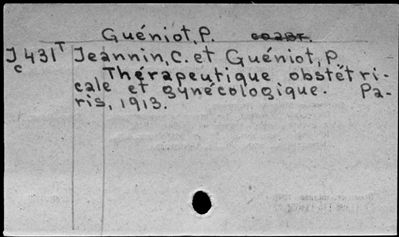 Guéniot, P. соавт.
J 431 T Jeannin, C. et Guéniot, P.
c Thérapeutique obstétri-
cale et gynécologique. Pa-
ris, 1913.